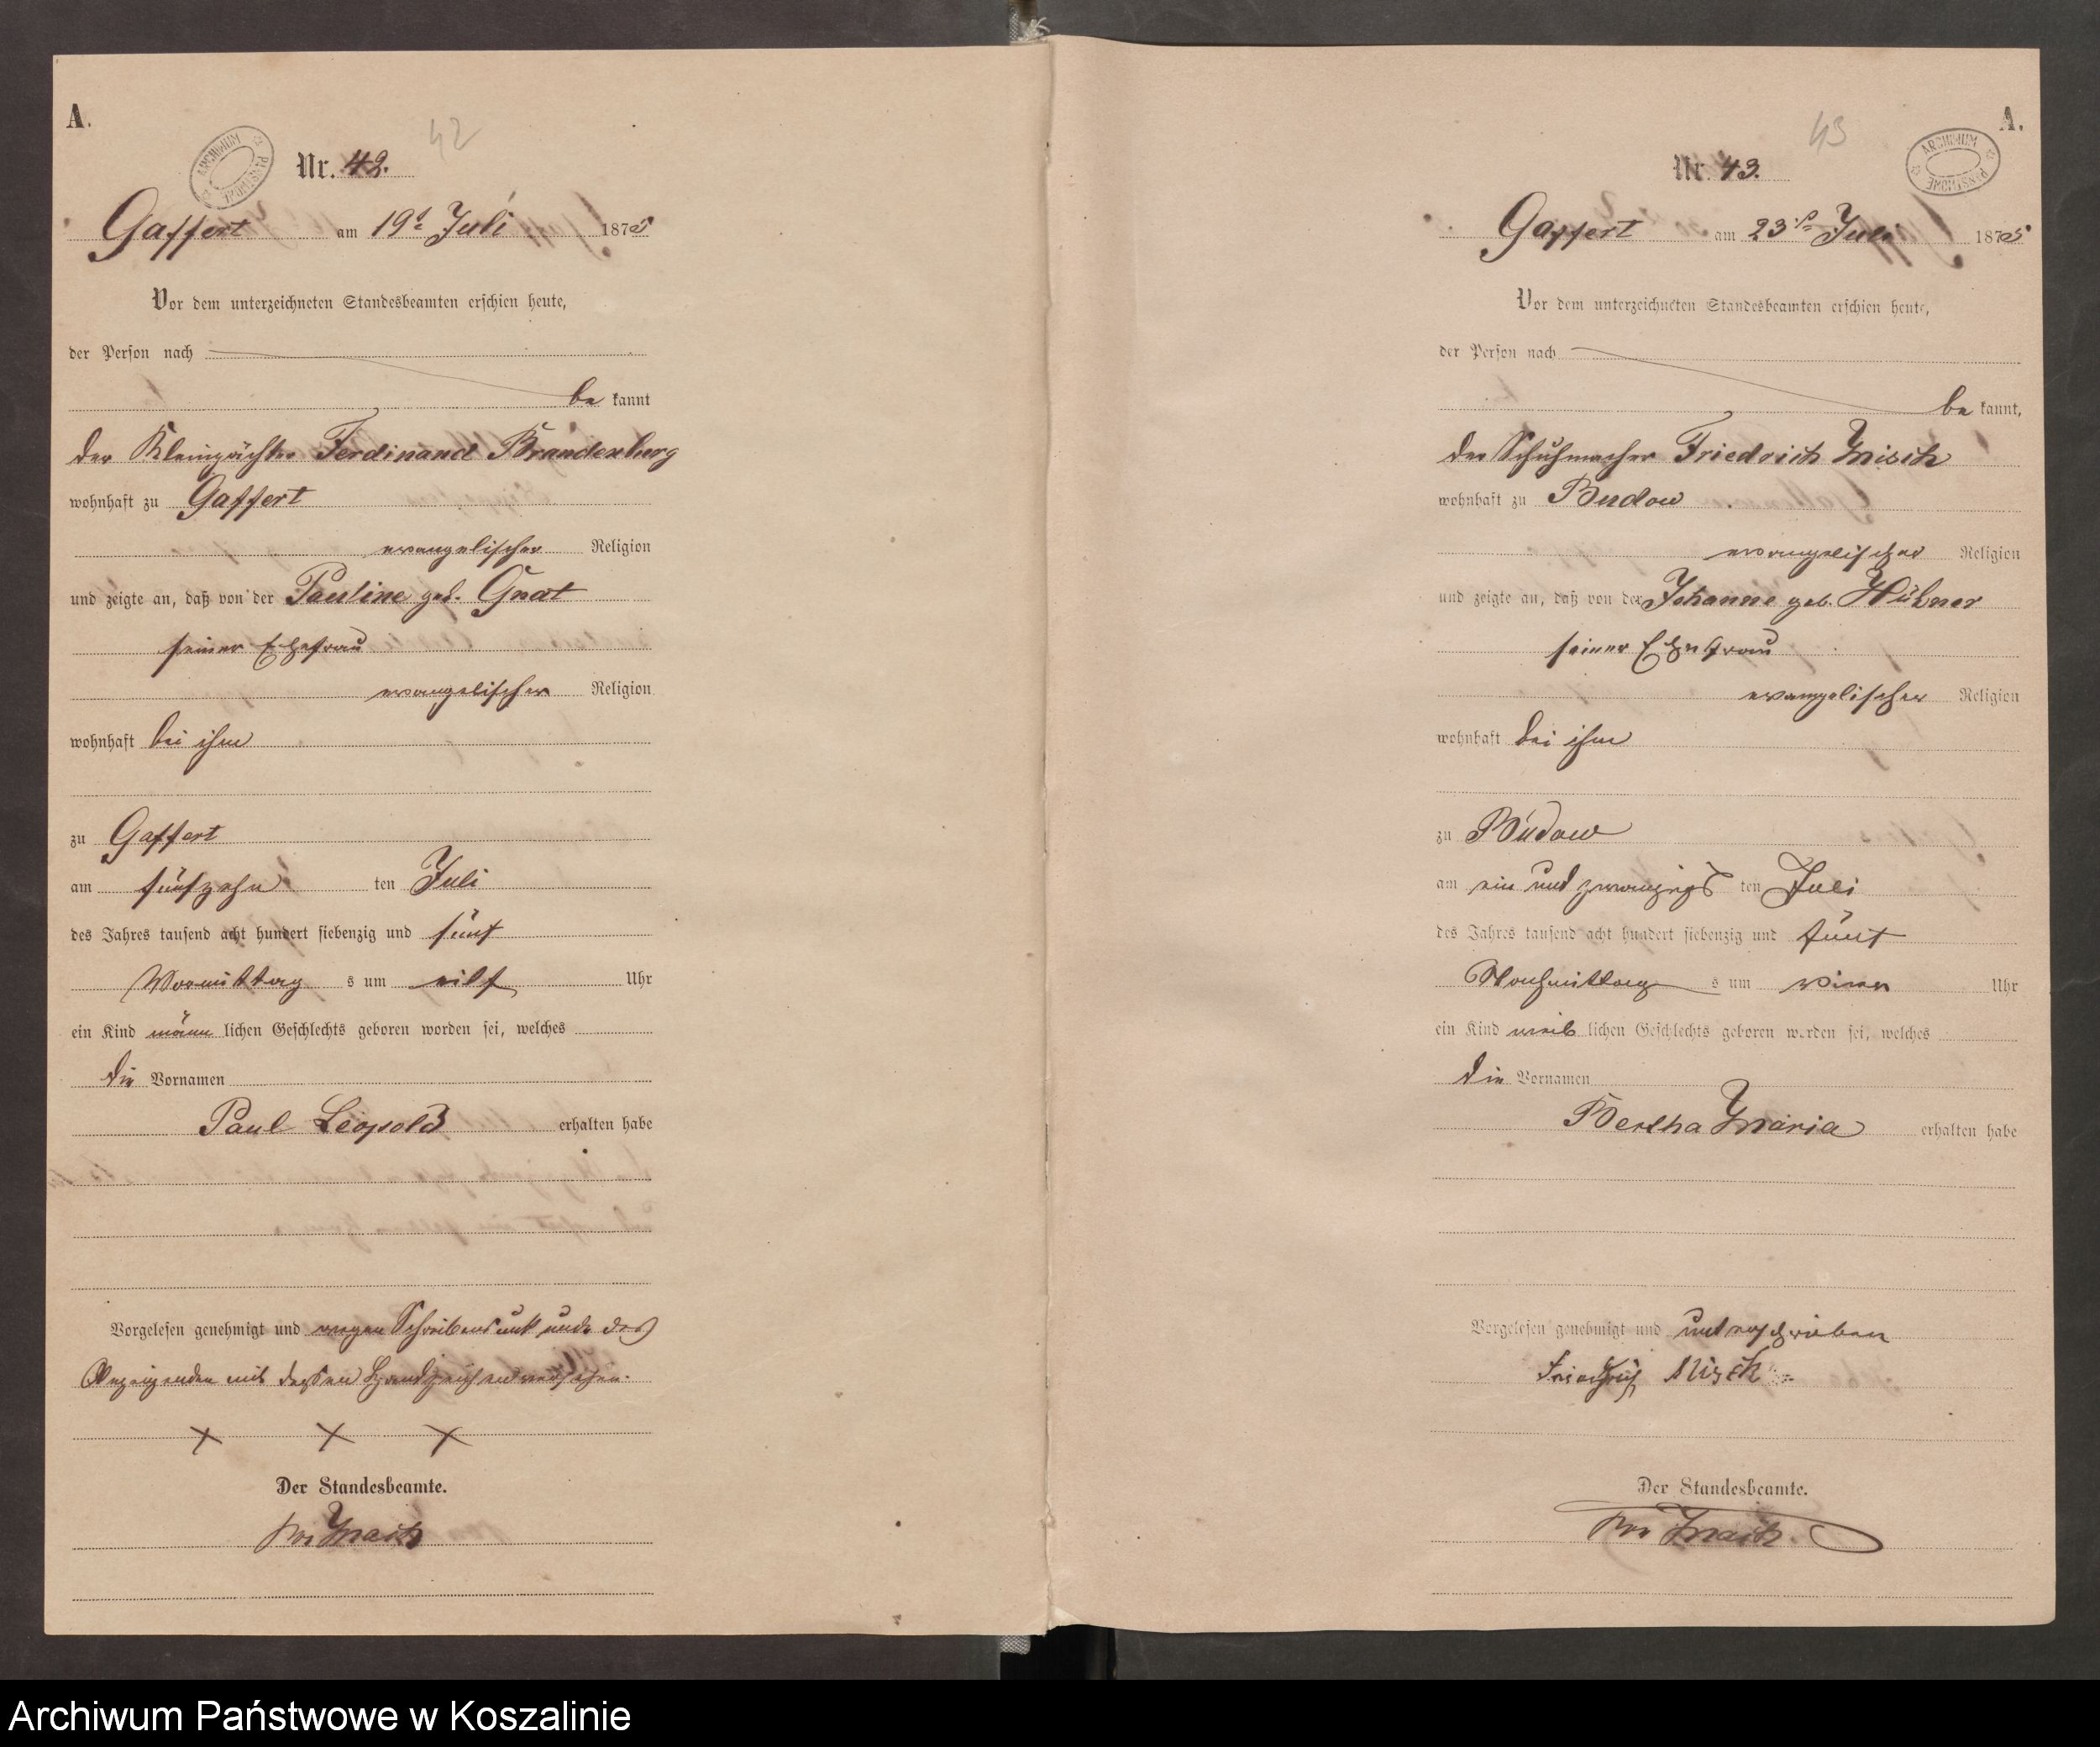 A.
ARCHIWUM PAŃSTWOWE
42
Nr. 42.
Gaffert am 19t Juli 1875
Vor dem unterzeichneten Standesbeamten erschien heute,
der Person nach
be kannt
der Kleinpächter Ferdinand Brandenburg
wohnhaft zu Gaffert
evangelischer Religion
und zeigte an, daß von der Pauline geb. Gnat
seiner Ehefrau
evangelischer Religion
wohnhaft bei ihm
zu Gaffert
am fünfzehn ten Juli
des Jahres tausend acht hundert siebenzig und fünf
Vormittag s um eilf Uhr
ein Kind männ lichen Geschlechts geboren worden sei, welches
die Vornamen
Paul Leopold erhalten habe
Vorgelesen genehmigt und wegen Schreibensunkunde des
Anzeigenden mit dessen Handzeichen versehen.
X X X
Der Standesbeamte.
43
A.
ARCHIWUM PAŃSTWOWE
Nr. 43.
Gaffert am 23 Juli 1875
Vor dem unterzeichneten Standesbeamten erschien heute,
der Person nach
be kannt,
der Schuhmacher Friedrich Misch
wohnhaft zu Budow
evangelischer Religion
und zeigte an, daß von der Johanne geb. Hübner
seiner Ehefrau
evangelischer Religion
wohnhaft bei ihm
zu Budow
am ein und zwanzigs ten Juli
des Jahres tausend acht hundert siebenzig und fünf
Nachmittag s um vier Uhr
ein Kind weib lichen Geschlechts geboren worden sei, welches
die Vornamen
Bertha Maria erhalten habe
Vorgelesen genehmigt und unterschrieben
Friedrich Misch
Der Standesbeamte.
Archiwum Państwowe w Koszalinie